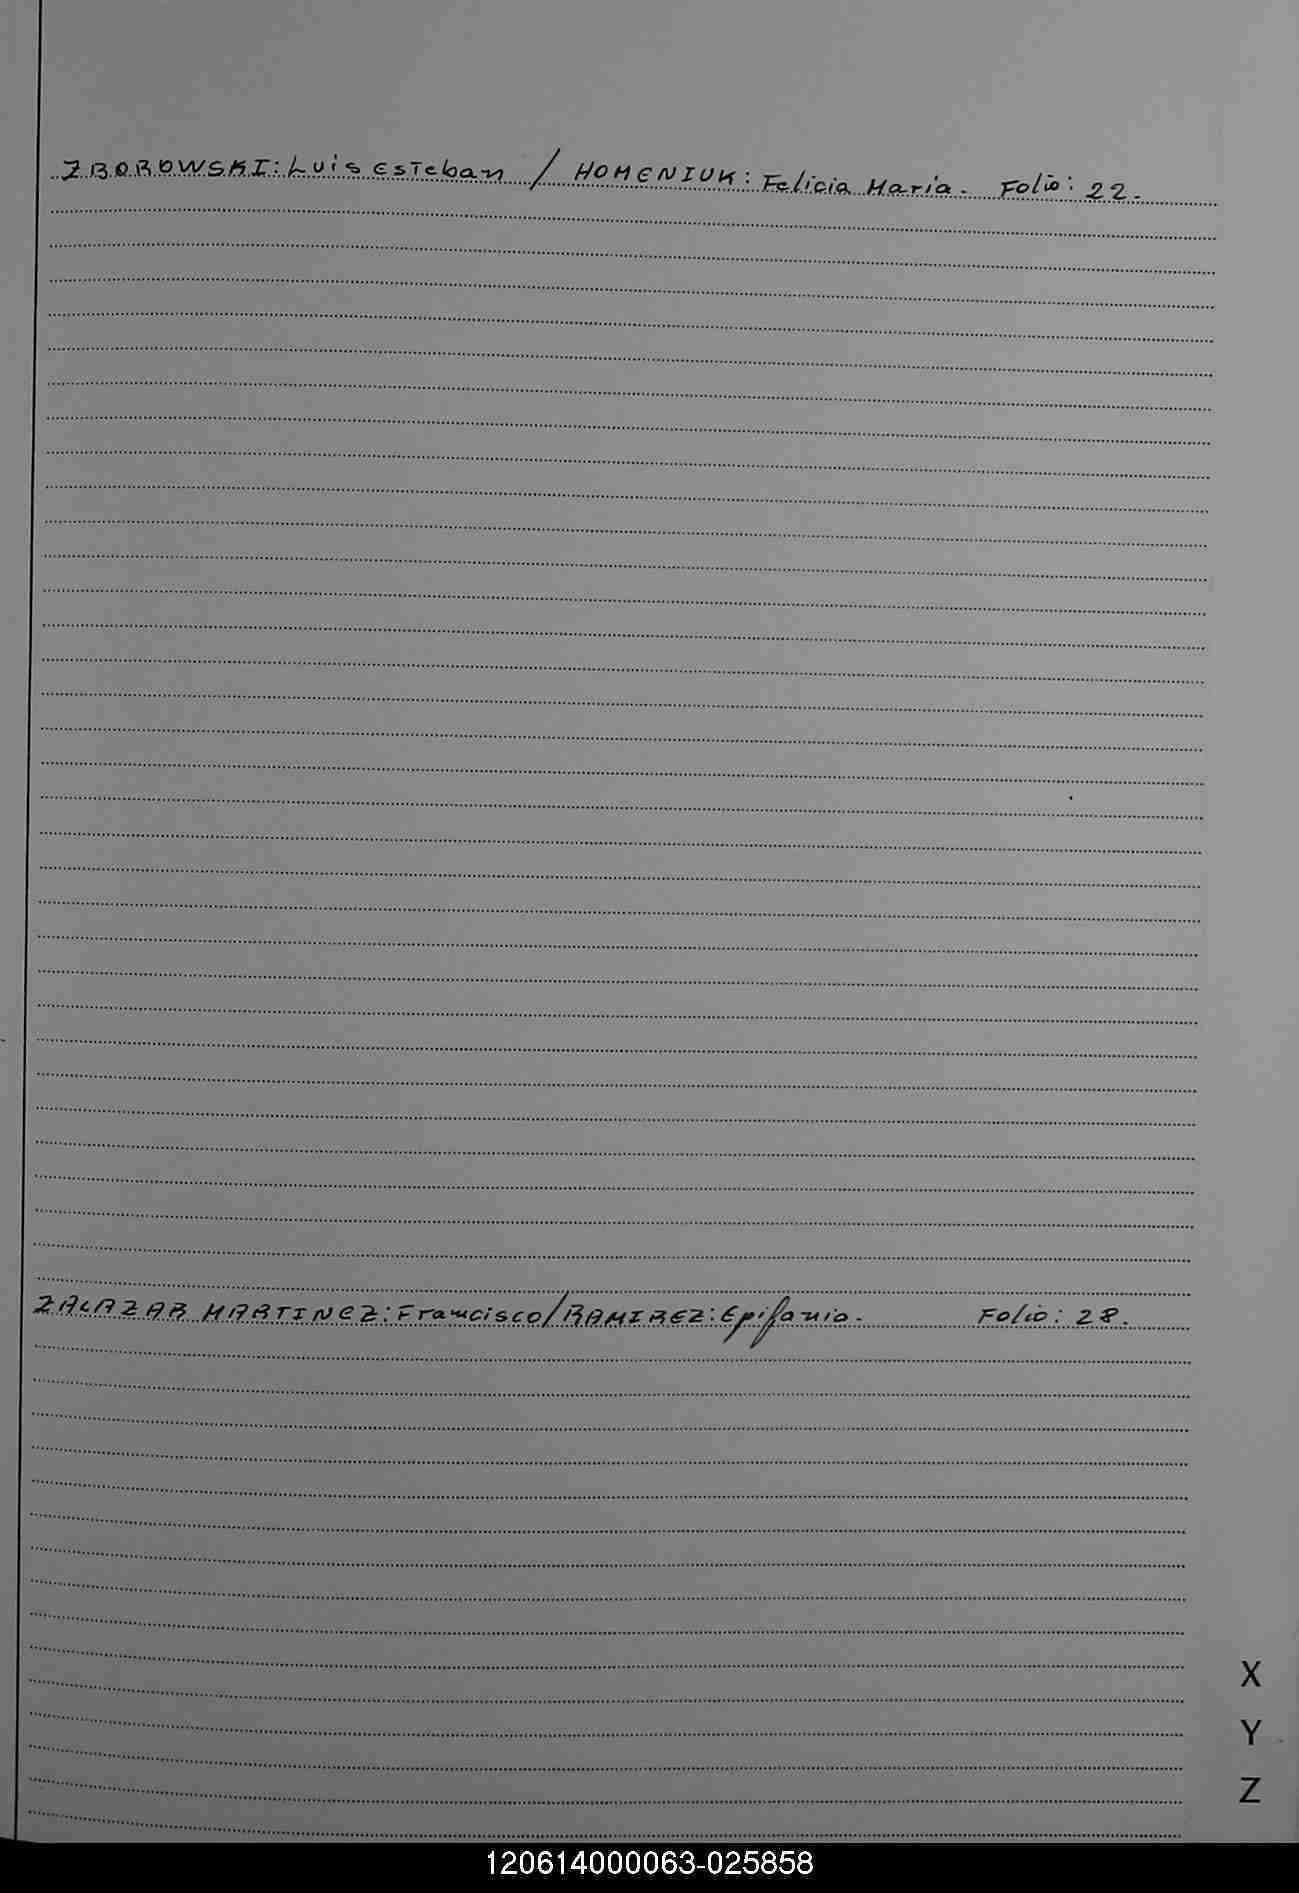 ZBOROWSKI: Luis Esteban / HOMENIUK: Felicia Maria. Folio: 22.
ZALAZAR MARTINEZ: Francisco/RAMIREZ: Epifania. Folio: 28.
X
Y
Z
120614000063-025858